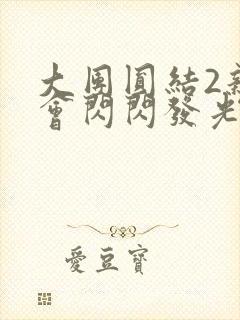 大團圓結2新
會閃閃發光
愛豆寶